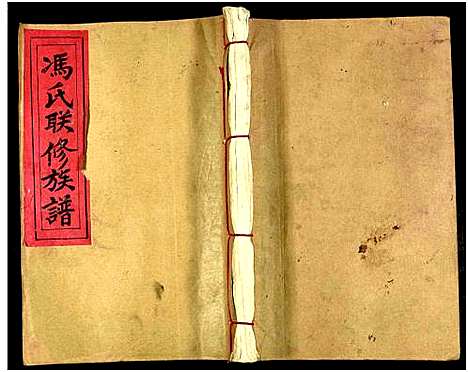 馮氏联修族譜